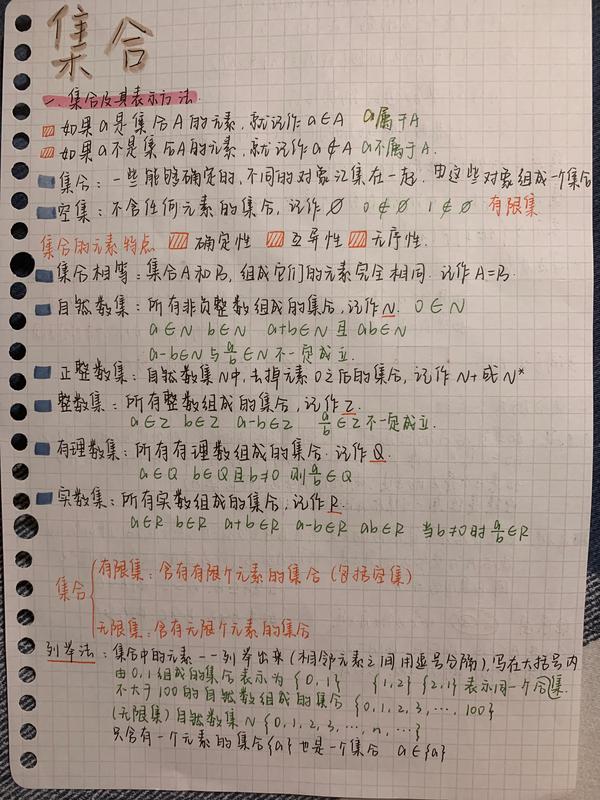 集合
一. 集合及其表示方法.
如果a是集合A的元素,就记作a∈A a属于A
如果a不是集合A的元素,就记作a∉A a不属于A.
集合:一些能够确定的,不同的对象汇集在一起,由这些对象组成一个集合
空集:不含任何元素的集合,记作∅ 0∉∅ 1∉∅ 有限集
集合的元素特点 确定性 互异性 无序性.
集合相等:集合A和B,组成它们的元素完全相同.记作A=B.
自然数集:所有非负整数组成的集合,记作N. 0∈N
a∈N b∈N a+b∈N且ab∈N
a-b∈N与a/b∈N不一定成立.
正整数集:自然数集N中,去掉元素0之后的集合,记作N+或N*
整数集:所有整数组成的集合,记作Z.
a∈Z b∈Z a-b∈Z a/b∈Z不一定成立.
有理数集:所有有理数组成的集合.记作Q.
a∈Q b∈Q且b≠0则a/b∈Q
实数集:所有实数组成的集合,记作R
a∈R b∈R a+b∈R a-b∈R ab∈R 当b≠0时a/b∈R
有限集:含有有限个元素的集合(包括空集)
集合
无限集:含有无限个元素的集合
列举法:集合中的元素一一列举出来(相邻元素之间用逗号分隔),写在大括号内
由0,1组成的集合表示为{0,1} {1,2}{2,1}表示同一个集.
不大于100的自然数组成的集合 {0,1,2,3,…,100}
(无限集)自然数集N {0,1,2,3,…,n,…}
只含有一个元素的集合{a}也是一个集合 a∈{a}